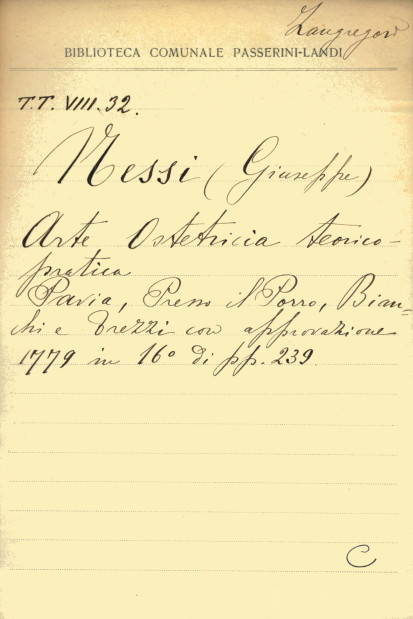 BIBLIOTECA COMUNALE PASSERINI-LANDI
T.T. VIII. 32.
Nessi (Giuseppe)
Arte Ostetricia teorico-
pratica
Pavia, Presso il Porro, Bian=
chi e Trezzi con approvazione
1779 in 16° di pp. 239.
C